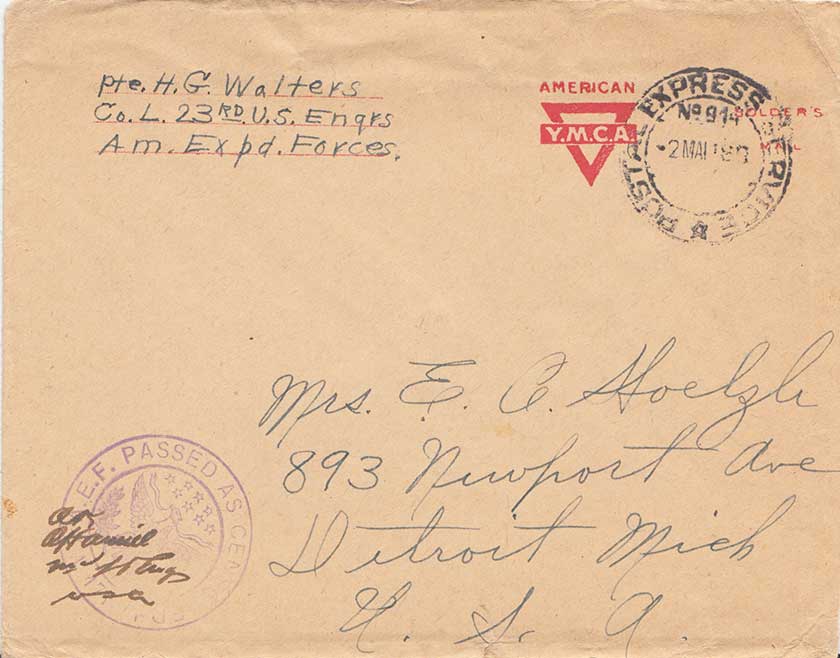 Pte. H. G. Walters
Co. L. 23RD. U.S. Engrs
Am. Exp'd. Forces.
AMERICAN
Y.M.C.A.
SOLDIER'S
MAIL
POSTAL EXPRESS SERVICE
No 914
2 MAI
Mrs. E. C. Hoelzle
893 Newport Ave
Detroit Mich
U. S. A.
E.F. PASSED AS CENSORED